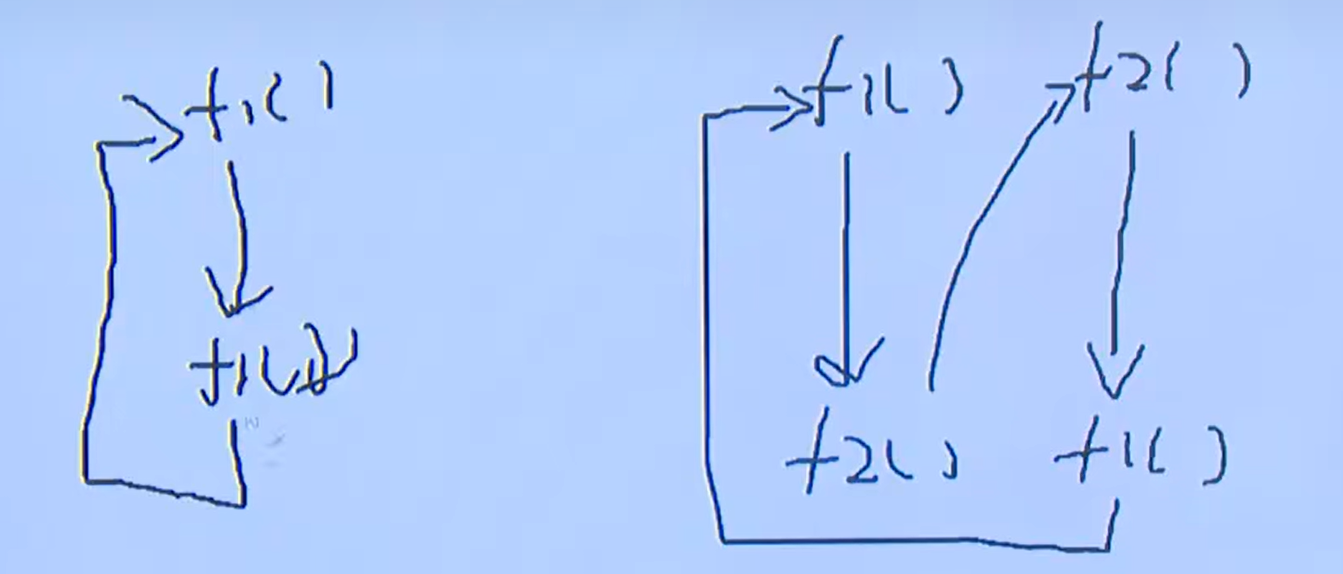 f1()
f1()
f1() f2()
f2() f1()